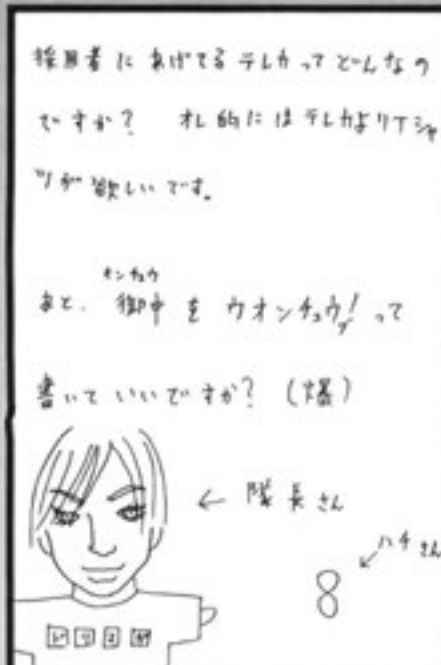 採用者にあげてるテレカってどんなの
ですか? オレ的にはテレカよりTシャ
ツが欲しいです。
オンチュウ
あと、御中をウオンチュウ!って
書いていいですか?(爆)
← 隊長さん
ハチさん
8